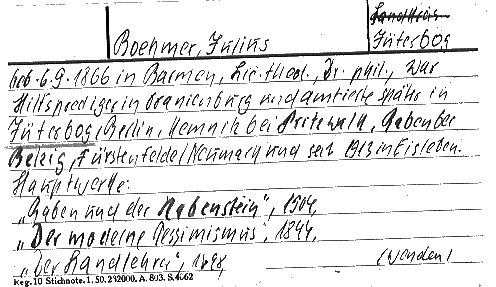 Landkreis
Boehmer, Julius Jüterbog
geb. 6.9.1866 in Barmen, Lic. theol., Dr. phil., war
Hilfsprediger in Oranienburg und amtierte später in
Jüterbog, Berlin, bei Pritzwalk, Raben bei
Belzig, Fürstenfelde/Neumark und seit 1913 in Eisleben.
Hauptwerke:
„Raben und der Rabenstein", 1904,
„Der moderne Pessimismus",
„Der Handlehrer",
(wenden!
Reg. 10 Stichnote. 1. 50. 232000. A. 803. S. 4662